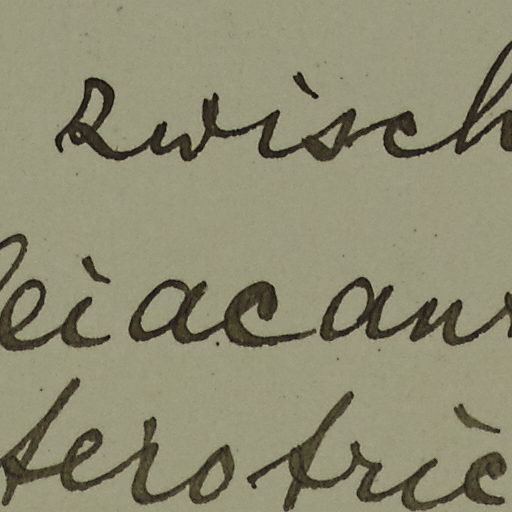 zwisch
eiacan
terotric